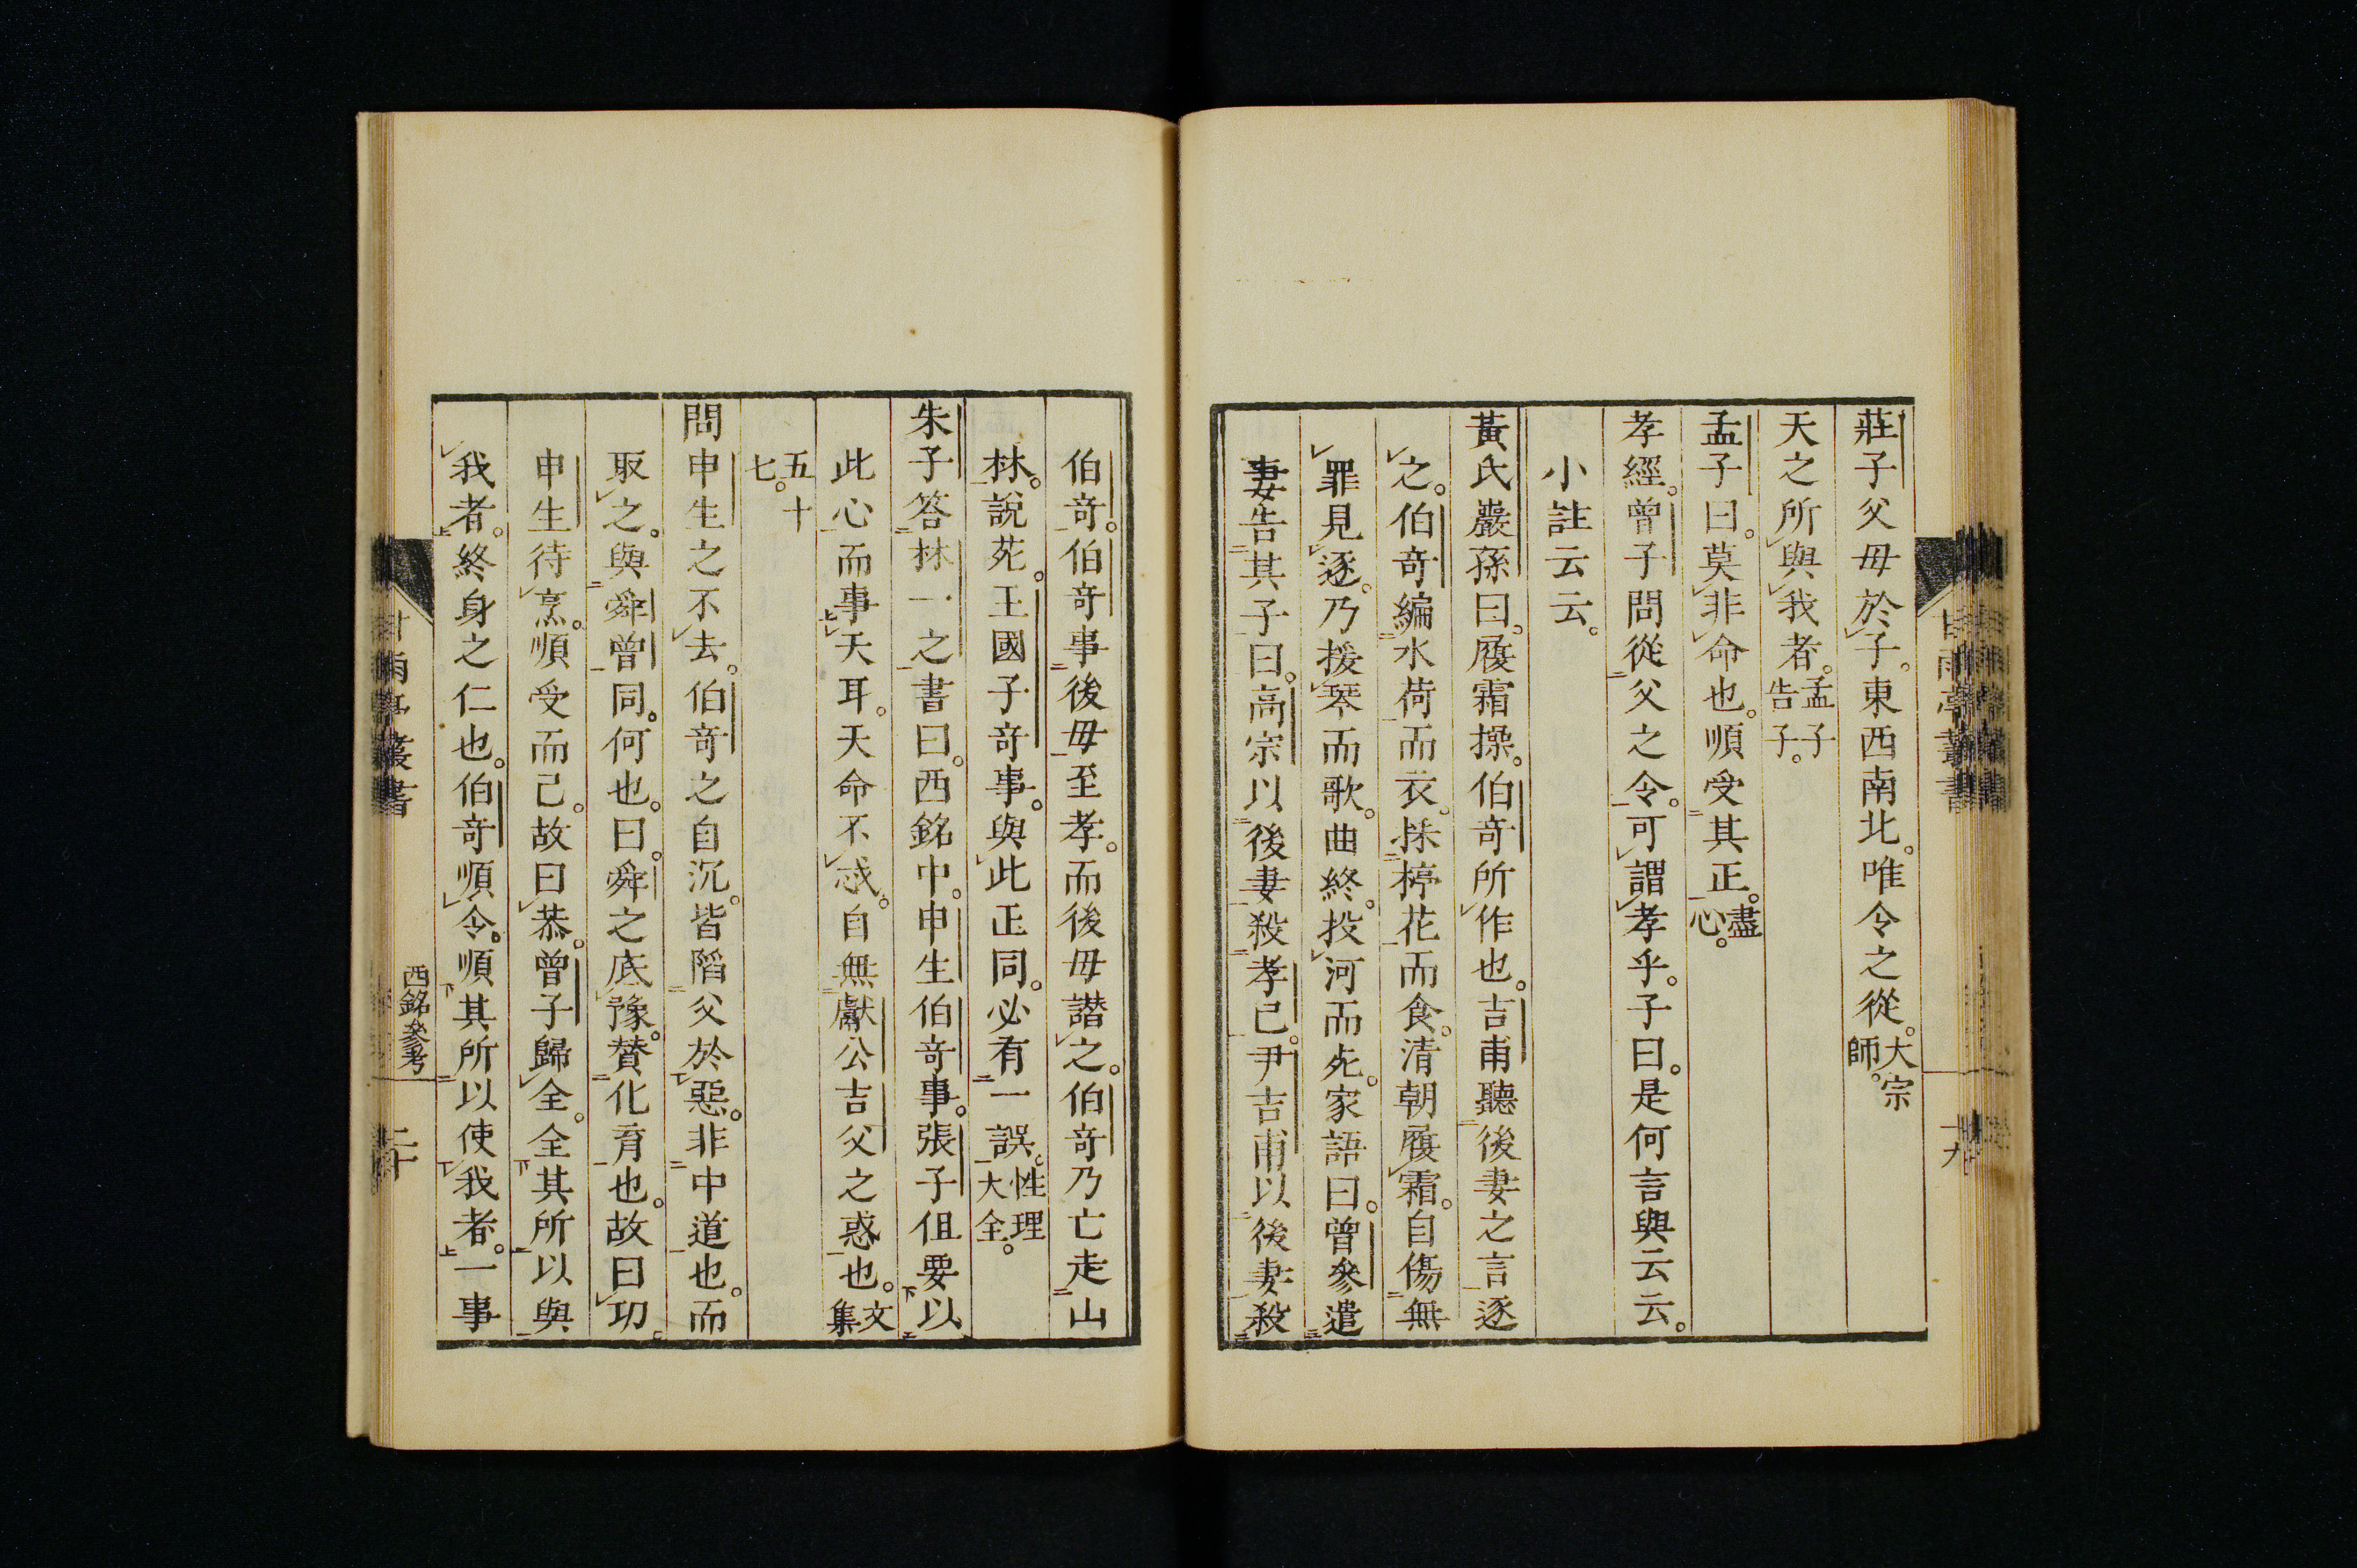 莊子父母於子。東西南北。唯令之從。大宗師。
天之所與我者。孟子告子。
孟子曰。莫非命也。順受其正。盡心。
孝經。曾子問從父之令。可謂孝乎。子曰。是何言與云云。
小註云云。
黃氏巖孫曰。履霜操。伯奇所作也。吉甫聽後妻之言逐
之。伯奇編水荷而衣。採楟花而食。清朝履霜。自傷無
罪見逐。乃援琴而歌。曲終。投河而死。家語曰。曾參遣
妻告其子曰。高宗以後妻殺孝己。尹吉甫以後妻殺
甘雨亭叢書
十九
伯奇。伯奇事後母至孝。而後母譖之。伯奇乃亡走山
林。說苑。王國子奇事。與此正同。必有一誤。性理大全。
朱子答林一之書曰。西銘中。申生伯奇事。張子但要以
此心而事天耳。天命不忒。自無獻公吉父之惑也。文集
五十七。
問申生之不去。伯奇之自沉。皆陷父於惡。非中道也。而
取之。與舜曾同。何也。曰。舜之底豫。贊化育也。故曰功。
申生待烹。順受而已。故曰恭。曾子歸全。全其所以與
我者。終身之仁也。伯奇順令。順其所以使我者。一事
甘雨亭叢書
西銘參考
二十